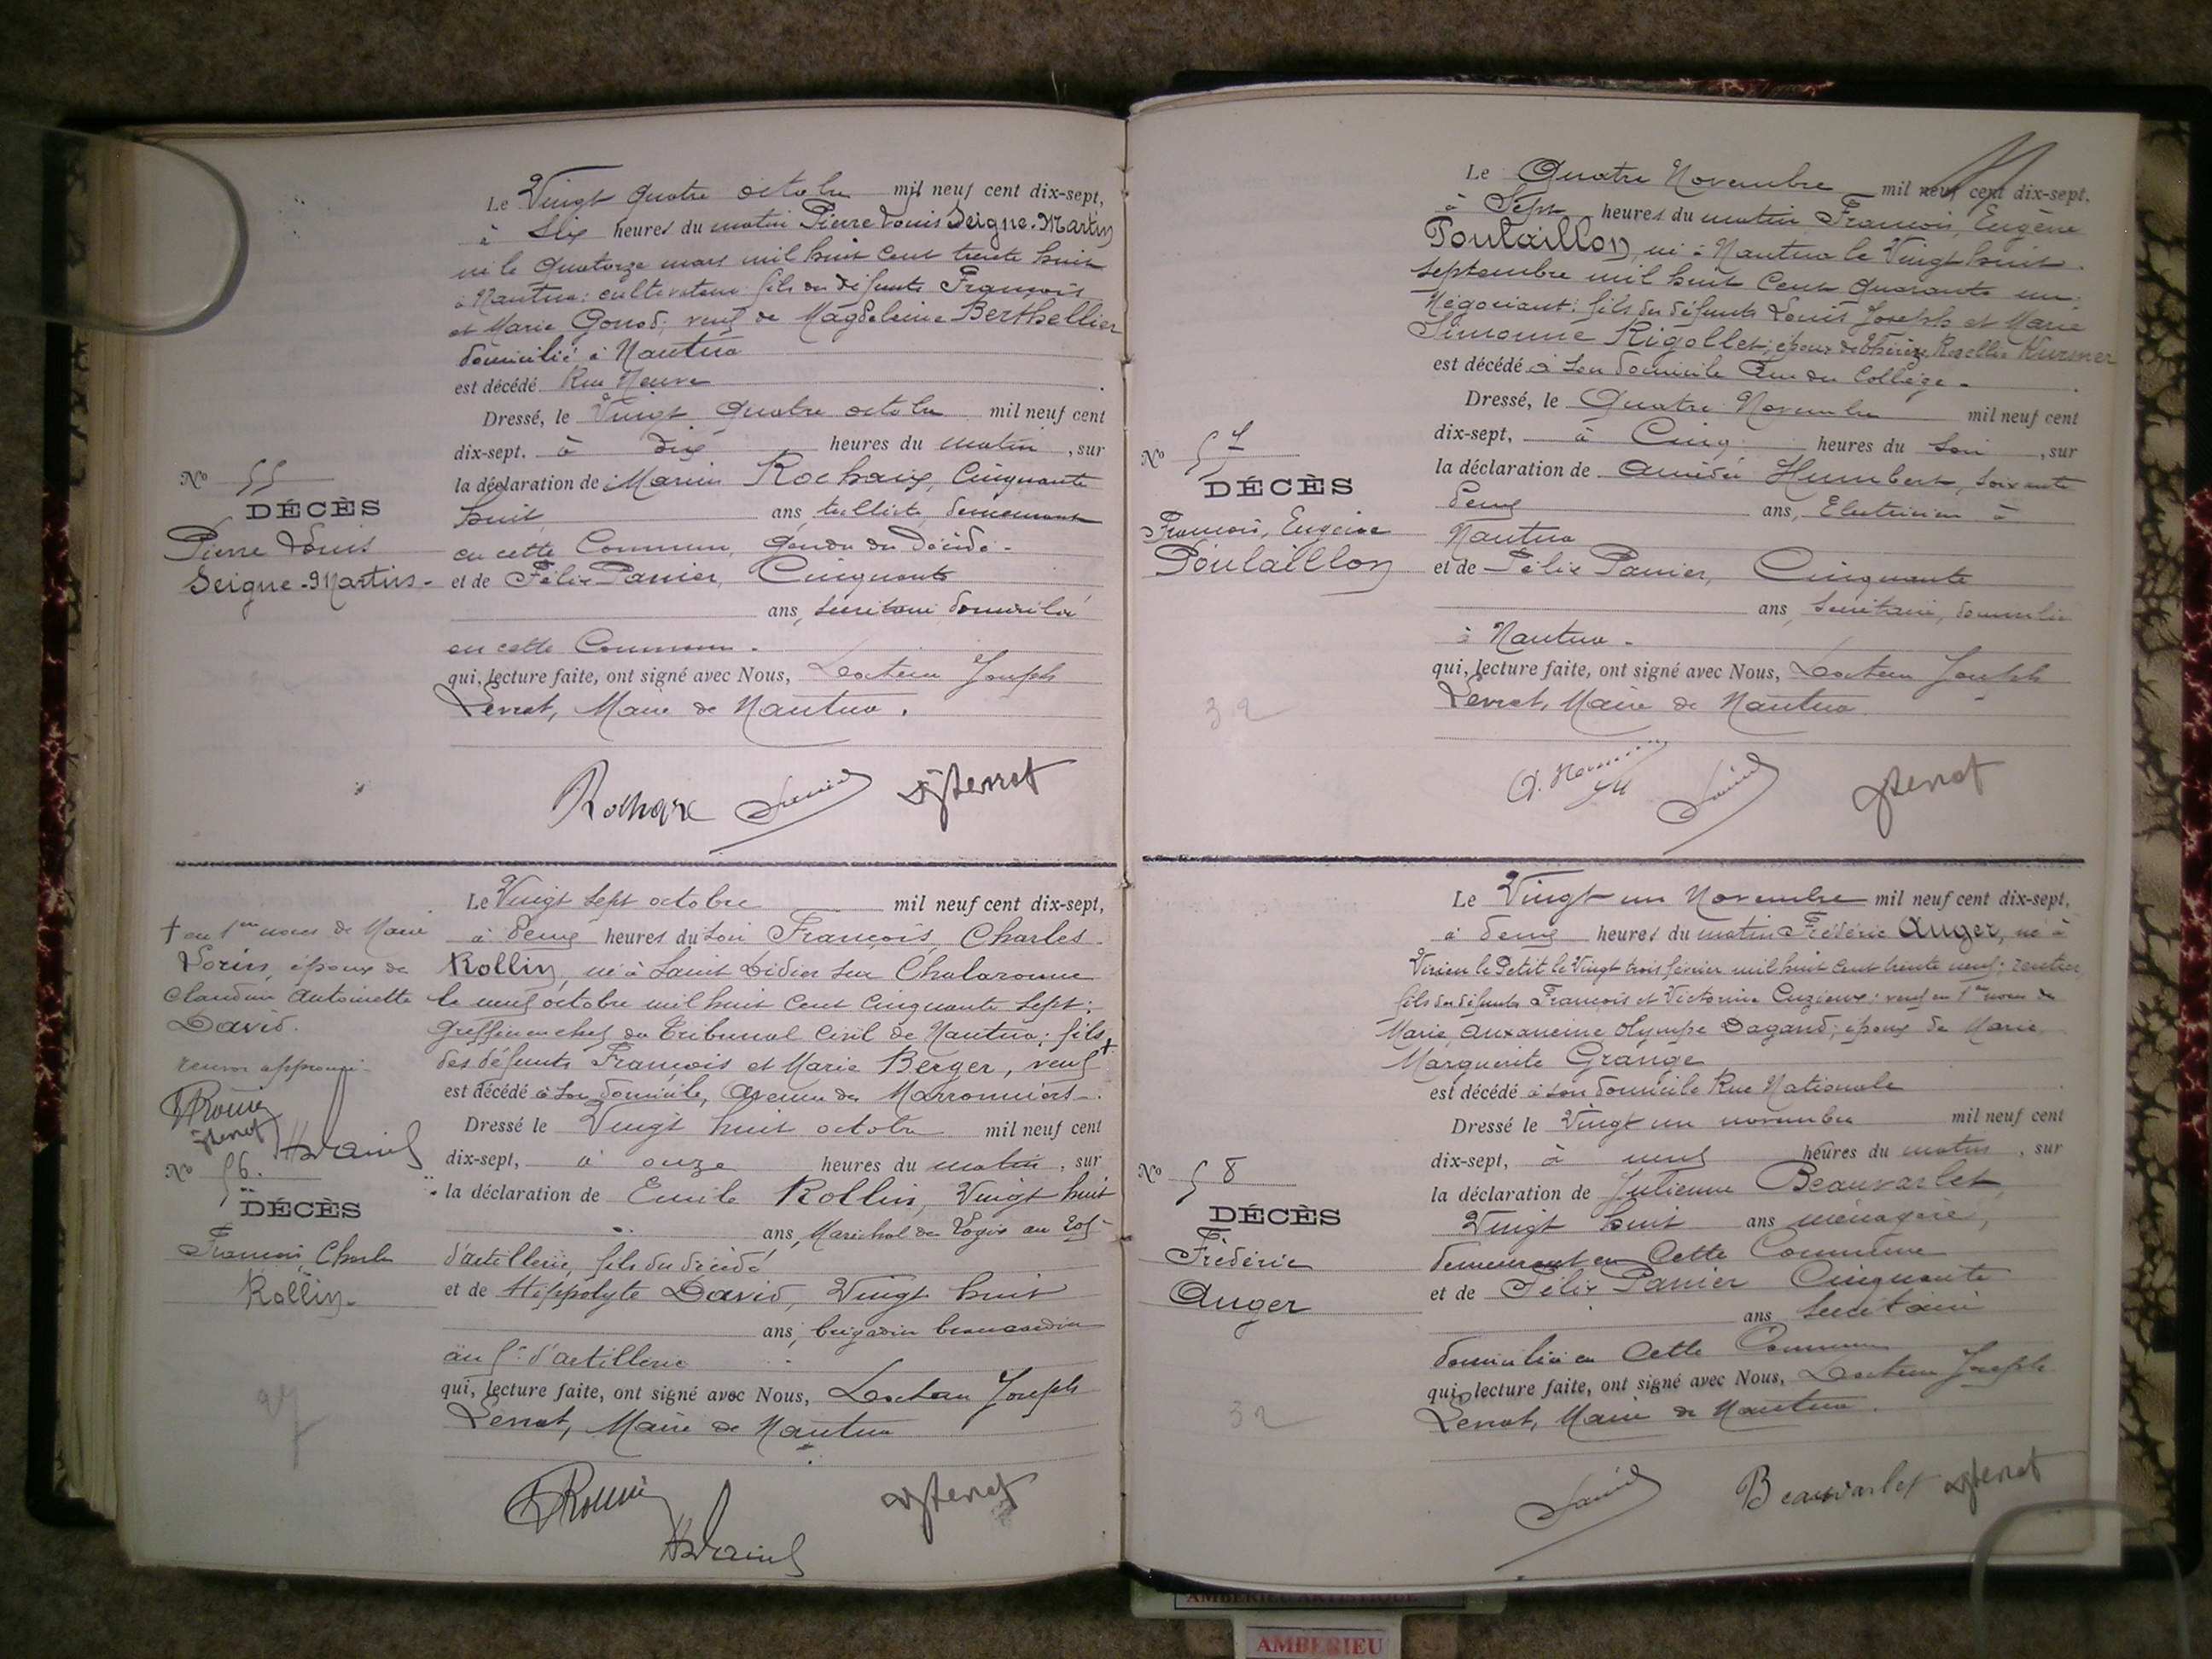 Le Vingt quatre octobre mil neuf cent dix-sept,
à Six heures du matin Pierre Louis Seigne-Martin
né le Quatorze mars mil huit cent trente huit
à Nantua: cultivateur fils des défunts François
et Marie Gonod; veuf de Magdeleine Berthellier
domicilié à Nantua
est décédé Rue Neuve
Dressé, le Vingt quatre octobre mil neuf cent
dix-sept, à dix heures du matin, sur
la déclaration de Marius Rochaix, Cinquante
huit ans, demeurant
en cette Commune, gendre du Décédé-
et de Félix Panier, Cinquante
ans, secrétaire domicilié
en cette Commune.
qui, lecture faite, ont signé avec Nous, Docteur Joseph
Levrat, Maire de Nantua.
Rochaix
No 55
DÉCÈS
Pierre Louis
Seigne-Martin-
Le Vingt sept octobre mil neuf cent dix-sept,
à deux heures du soir François, Charles
Rollin, né à Saint Didier sur Chalaronne
le neuf octobre mil huit cent cinquante sept;
Greffier en chef du Tribunal Civil de Nantua; fils
des défunts François et Marie Berger, veuf +
est décédé à son domicile, Avenue des Marronniers-.
Dressé le Vingt huit octobre mil neuf cent
dix-sept, à onze heures du matin, sur
la déclaration de Emile Rollin, Vingt huit
ans, Maréchal des Logis au
d'artillerie, fils du décédé
et de Hippolyte David, Vingt huit
ans, brigadier brancardier
au 5e d'artillerie
qui, lecture faite, ont signé avec Nous, Docteur Joseph
Levrat, Maire de Nantua
+ en 1eres noces de Marie
Lorin, époux de
Claudine Antoinette
David.
renvoi approuvé-
No 56.
DÉCÈS
François, Charles
Rollin-
27
Le Quatre Novembre mil neuf cent dix-sept,
à Sept heures du matin François, Eugène
Poulaillon, né à Nantua le Vingt huit
septembre mil huit cent quarante un;
Négociant: fils des défunts Louis Joseph et Marie
Simonne Rigollet; époux de Thérèze Rosellie
est décédé à son domicile Rue du Collège-
Dressé, le Quatre Novembre mil neuf cent
dix-sept, à Cinq heures du soir, sur
la déclaration de Amédée Humbert, soixante
deux ans, Electricien à
Nantua
et de Félix Panier, Cinquante
ans, secrétaire, domicilié
à Nantua-
qui, lecture faite, ont signé avec Nous, Docteur Joseph
Levrat, Maire de Nantua
No 57
DÉCÈS
François, Eugène
Poulaillon
32
Le Vingt un Novembre mil neuf cent dix-sept,
à deux heures du matin Frédéric Auger, né à
Virieu le Petit le Vingt trois février mil huit cent trente neuf; rentier,
fils des défunts François et Victorine Cuzieux: veuf en 1eres noces de
Marie, Auxancine Olympe Dagand; époux de Marie
Marguerite Grange
est décédé à son domicile Rue Nationale
Dressé le Vingt un novembre mil neuf cent
dix-sept, à neuf heures du matin, sur
la déclaration de Julienne Beauvarlet,
Vingt huit ans ménagère,
demeurant en Cette Commune
et de Félix Panier Cinquante
ans secrétaire
domicilié en Cette Commune
qui, lecture faite, ont signé avec Nous, Docteur Joseph
Levrat, Maire de Nantua.
Beauvarlet
No 58
DÉCÈS
Frédéric
Auger
32
AMBERIEU ARTISTIQUE
AMBERIEU